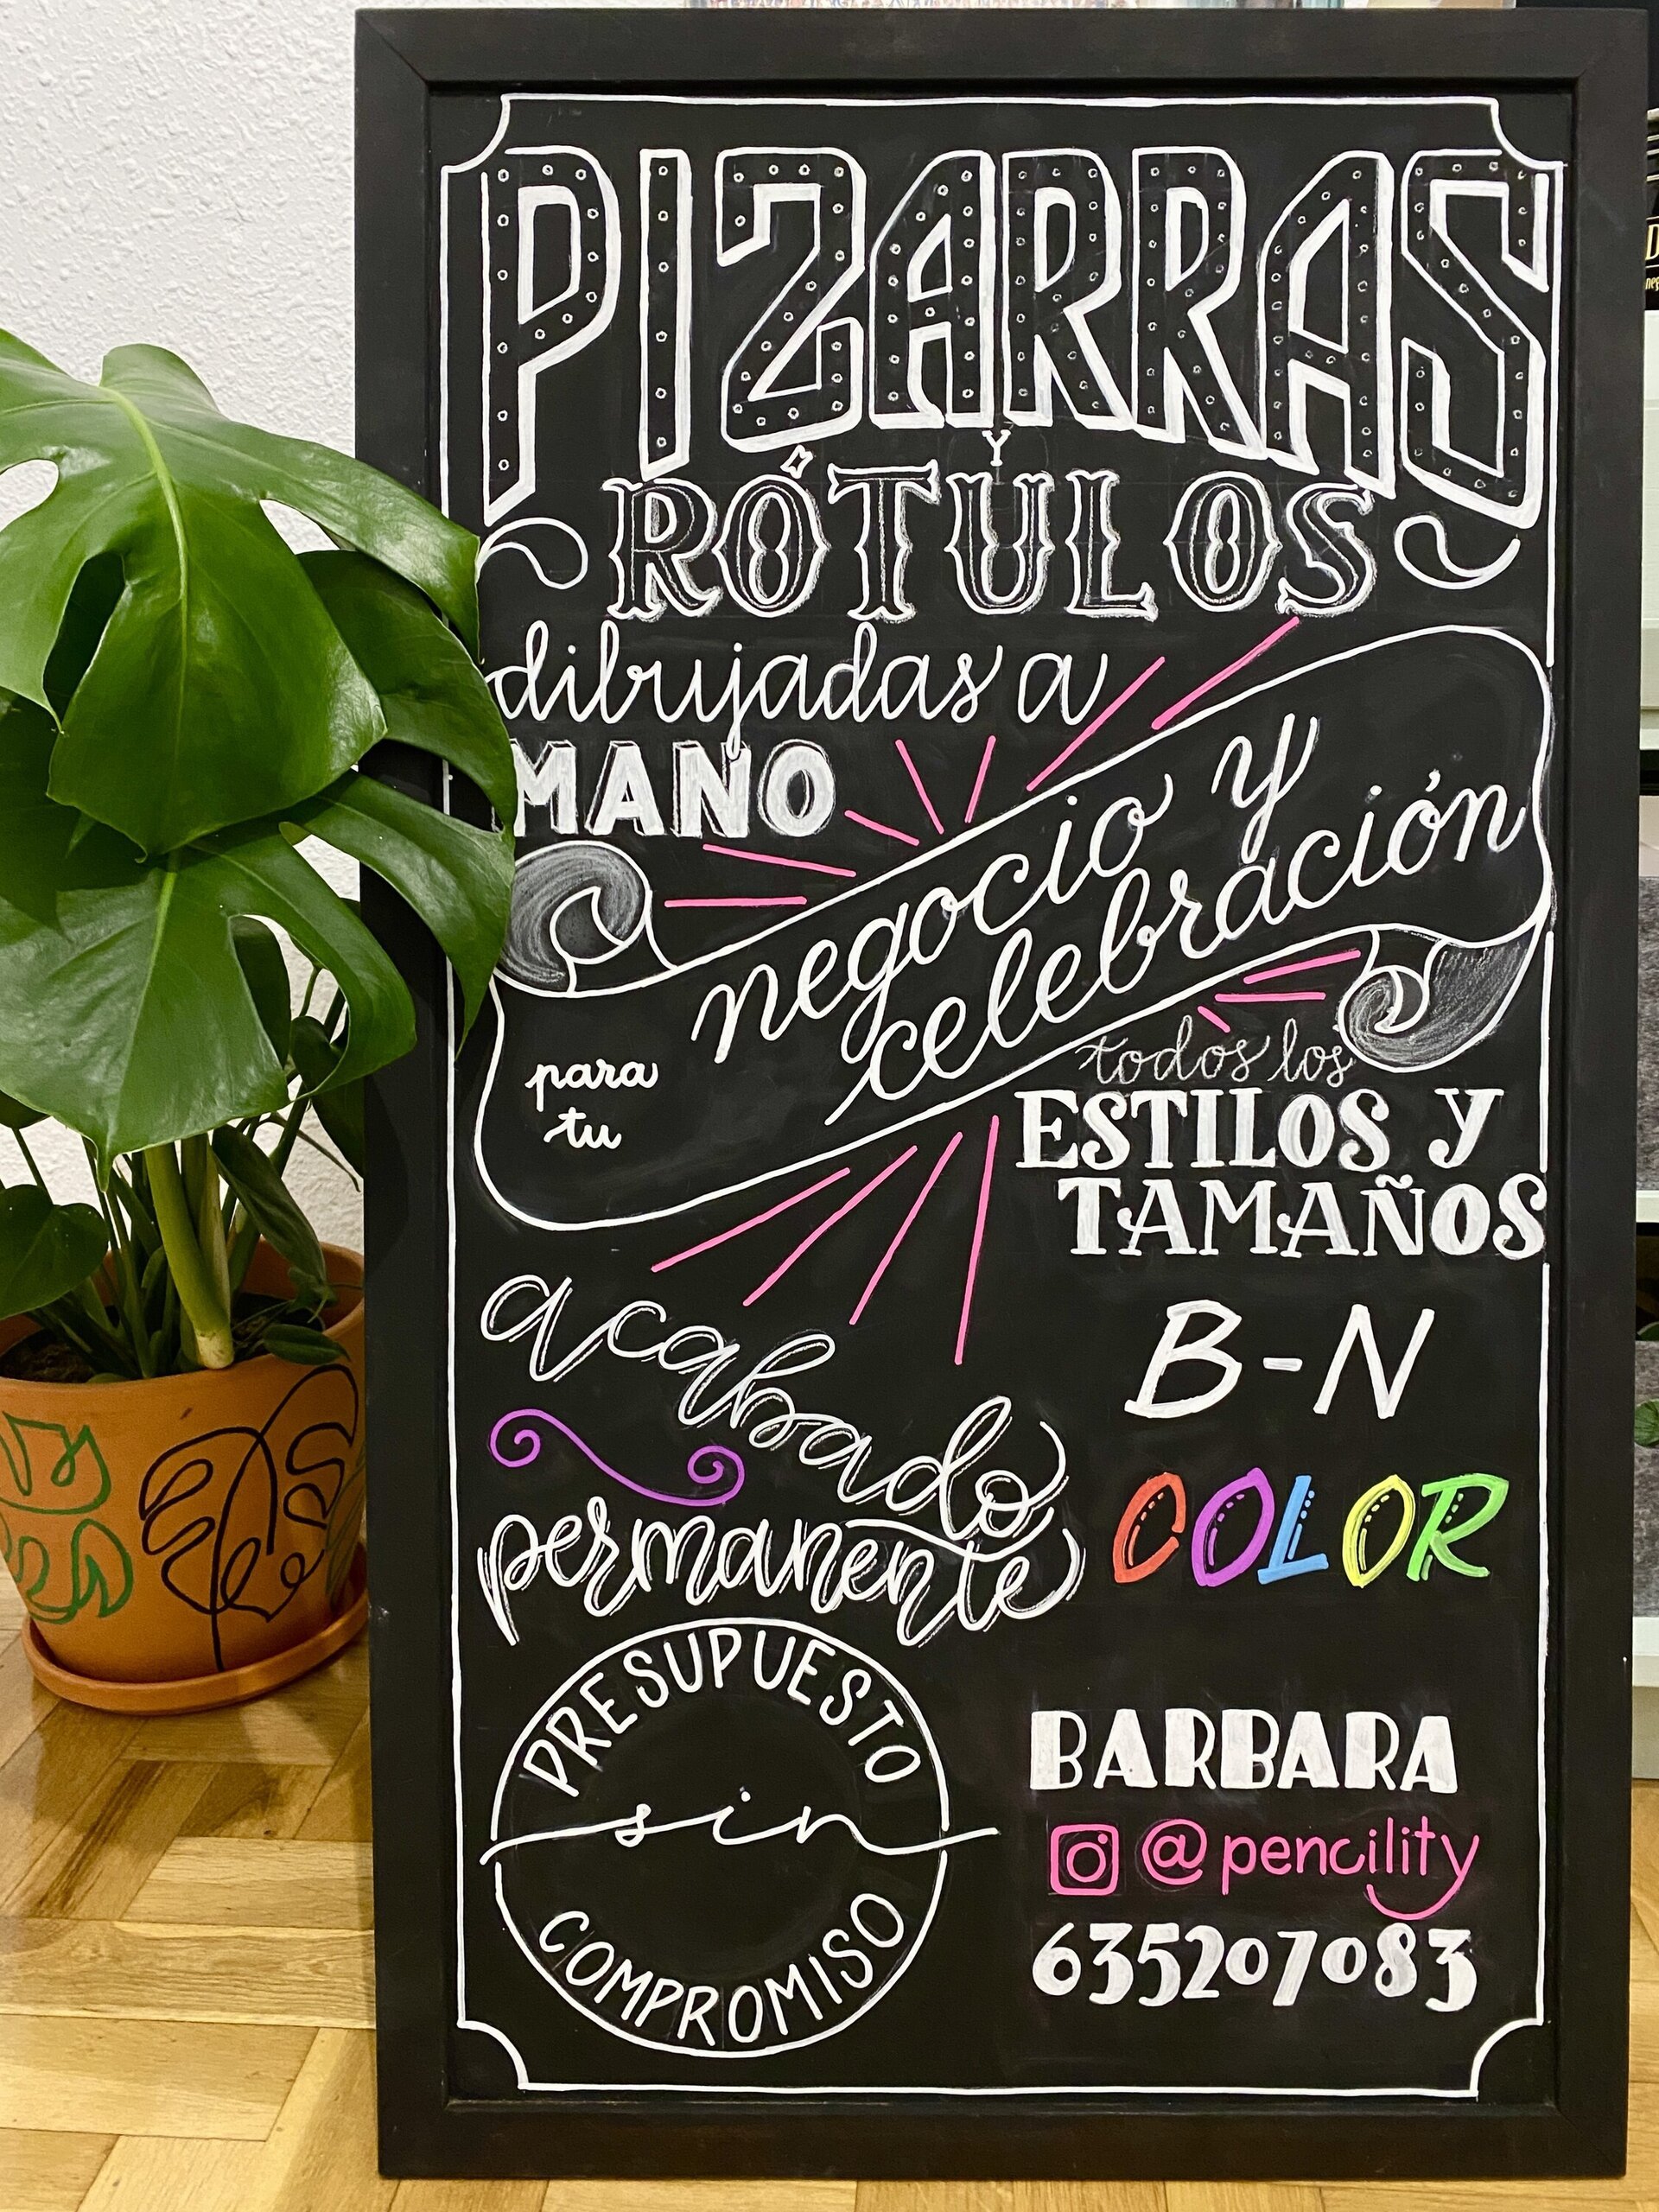 PIZARRAS
Y
RÓTULOS
dibujadas a
MANO
para
tu
negocio y
celebración
todos los
ESTILOS Y
TAMAÑOS
B-N
COLOR
acabado
permanente
PRESUPUESTO
sin
COMPROMISO
BARBARA
@pencility
635207083